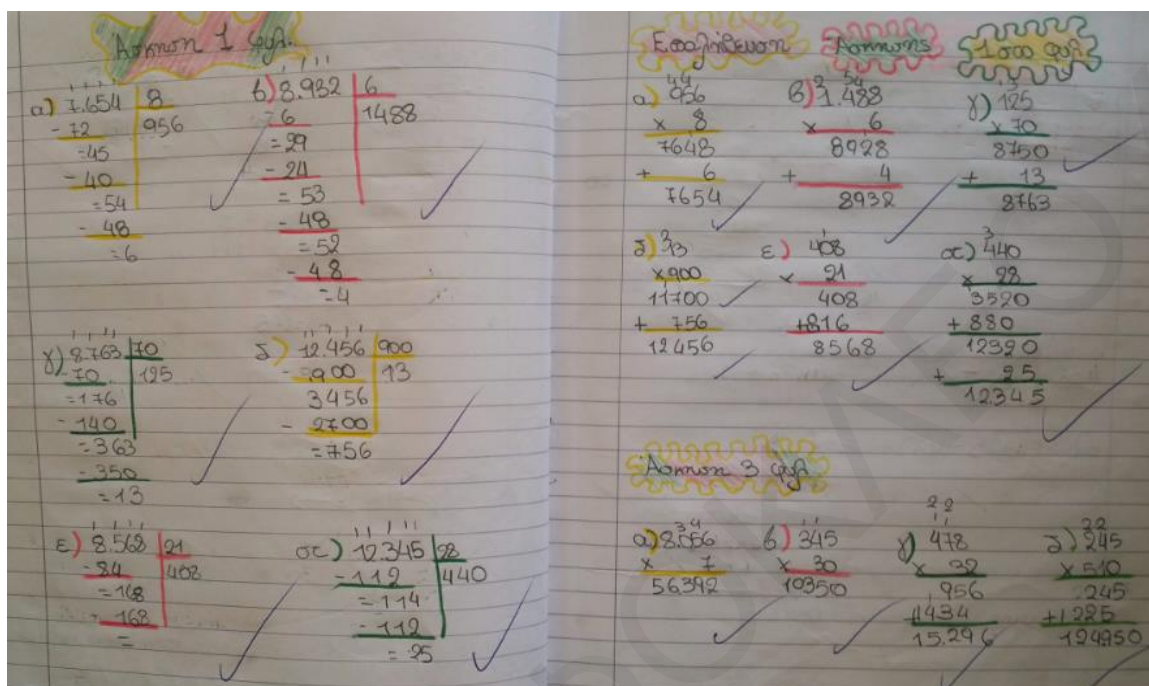 Άσκηση 1 φυλ.
α) 7.654 8
- 72 956
=45
- 40
=54
- 48
=6
β) 8.932 6
- 6 1488
= 29
- 24
= 53
- 48
= 52
- 48
=4
γ) 8.763 70
- 70 125
=176
- 140
=363
- 350
=13
δ) 12.456 900
- 900 13
3456
- 2700
=756
ε) 8.568 21
- 84 408
=168
- 168
=
στ) 12.345 28
- 112 440
= 114
- 112
= 25
Επαλήθευση Άσκησης 1
α) 956
x 8
7648
+ 6
7654
β) 1.488
x 6
8928
+ 4
8932
γ) 125
x 70
8750
+ 13
8763
δ) 13
x900
11700
+ 756
12456
ε) 408
x 21
408
+816
8568
στ) 440
x 28
3520
+ 880
12320
+ 25
12345
Άσκηση 3 φυλ.
α) 8.056
x 7
56392
β) 345
x 30
10350
γ) 478
x 32
956
1434
15.296
δ) 245
x 510
245
+1225
124950